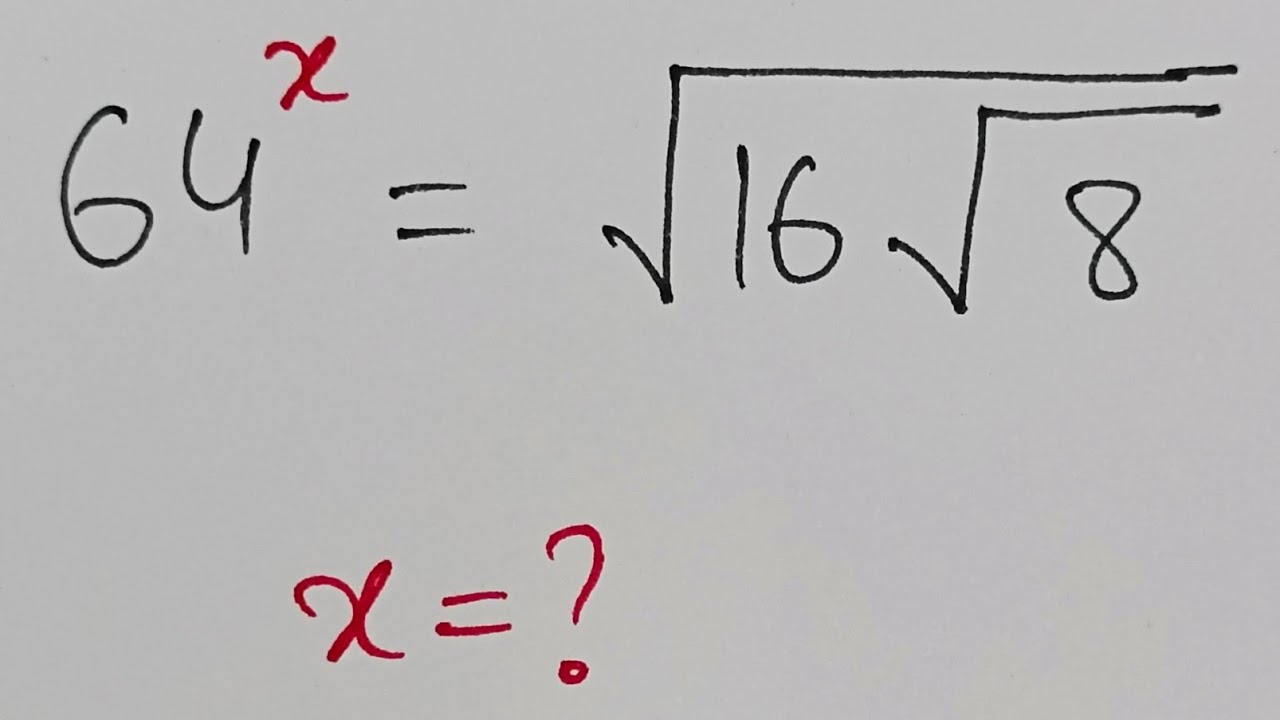 64^x = √(16√8)
x = ?